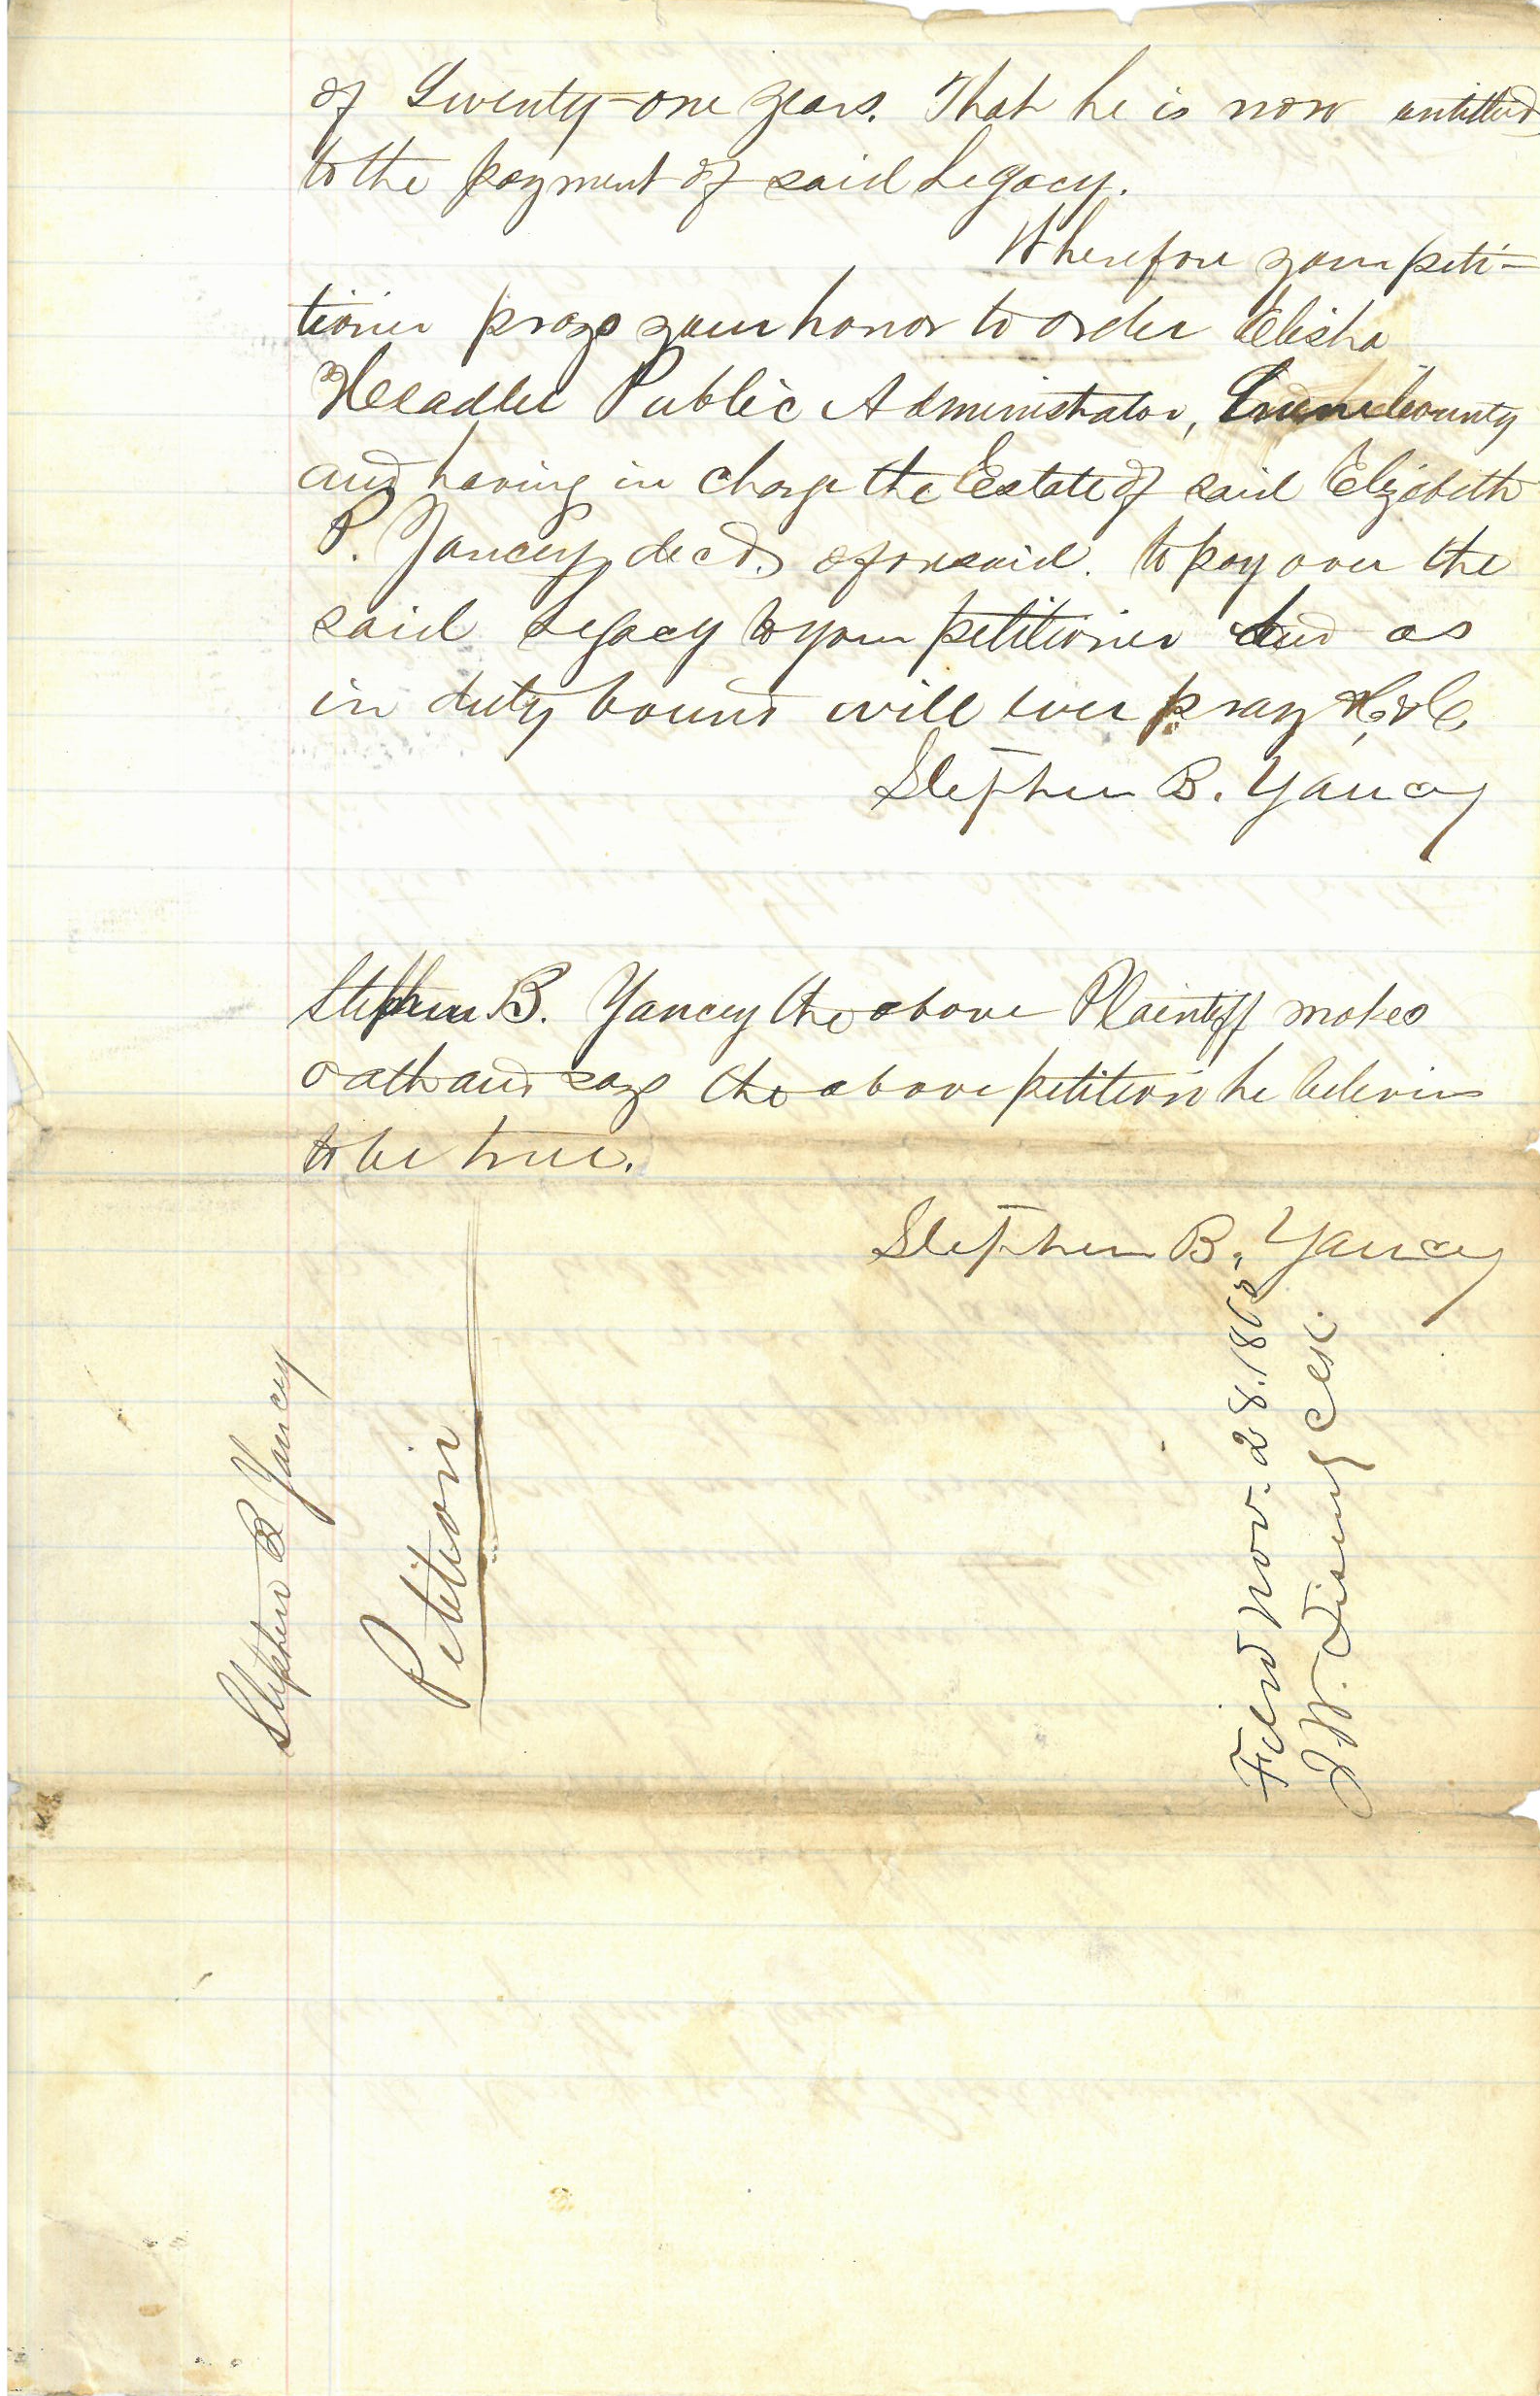 of Twenty-one years. That he is now entitled
to the payment of said Legacy.
Wherefore your peti-
tioner prays your honor to order Elisha
Headlee Public Administrator, Greene County
and having in charge the Estate of said Elizabeth
P. Yancey, decd. aforesaid. to pay over the
said Legacy to your petitioner And as
in duty bound will ever pray &c
Stephen B. Yancey
Stephen B. Yancey the above Plaintiff makes
oath and says the above petition he believes
to be true.
Stephen B. Yancey
Stephen B Yancey
Petition
Filed Nov. 28. 
J. W. Clk.